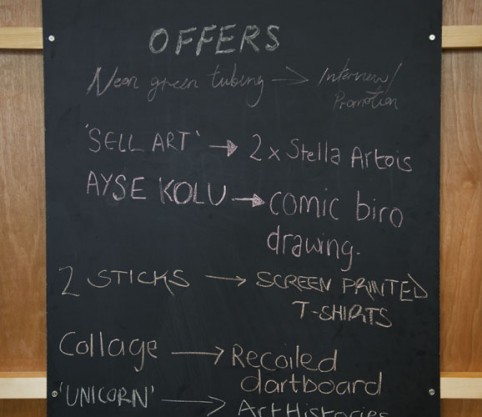 OFFERS
Neon green tubing → Interview/
Promotion
'SELL ART' → 2 x Stella Artois
AYSE KOLU → comic biro
drawing.
2 STICKS → SCREEN PRINTED
T-SHIRTS
Collage → Recoiled
dartboard
'UNICORN' → Art Histories